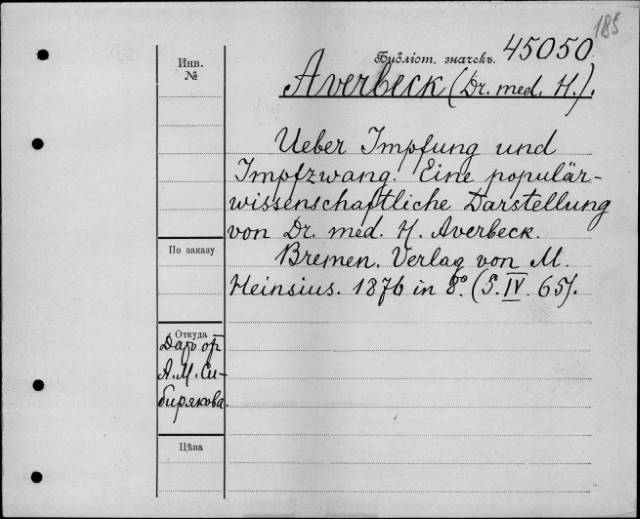 185
Инв.
№
Библіот. значекъ. 45050
Averbeck (Dr. med. H.).
Ueber Impfung und
Impfzwang. Eine populär-
wissenschaftliche Darstellung
von Dr. med. H. Averbeck.
Bremen. Verlag von M.
Heinsius. 1876 in 8º. (S. IV. 65).
По заказу
Откуда
Даръ от
А. М. Си-
бирякова.
Цѣна